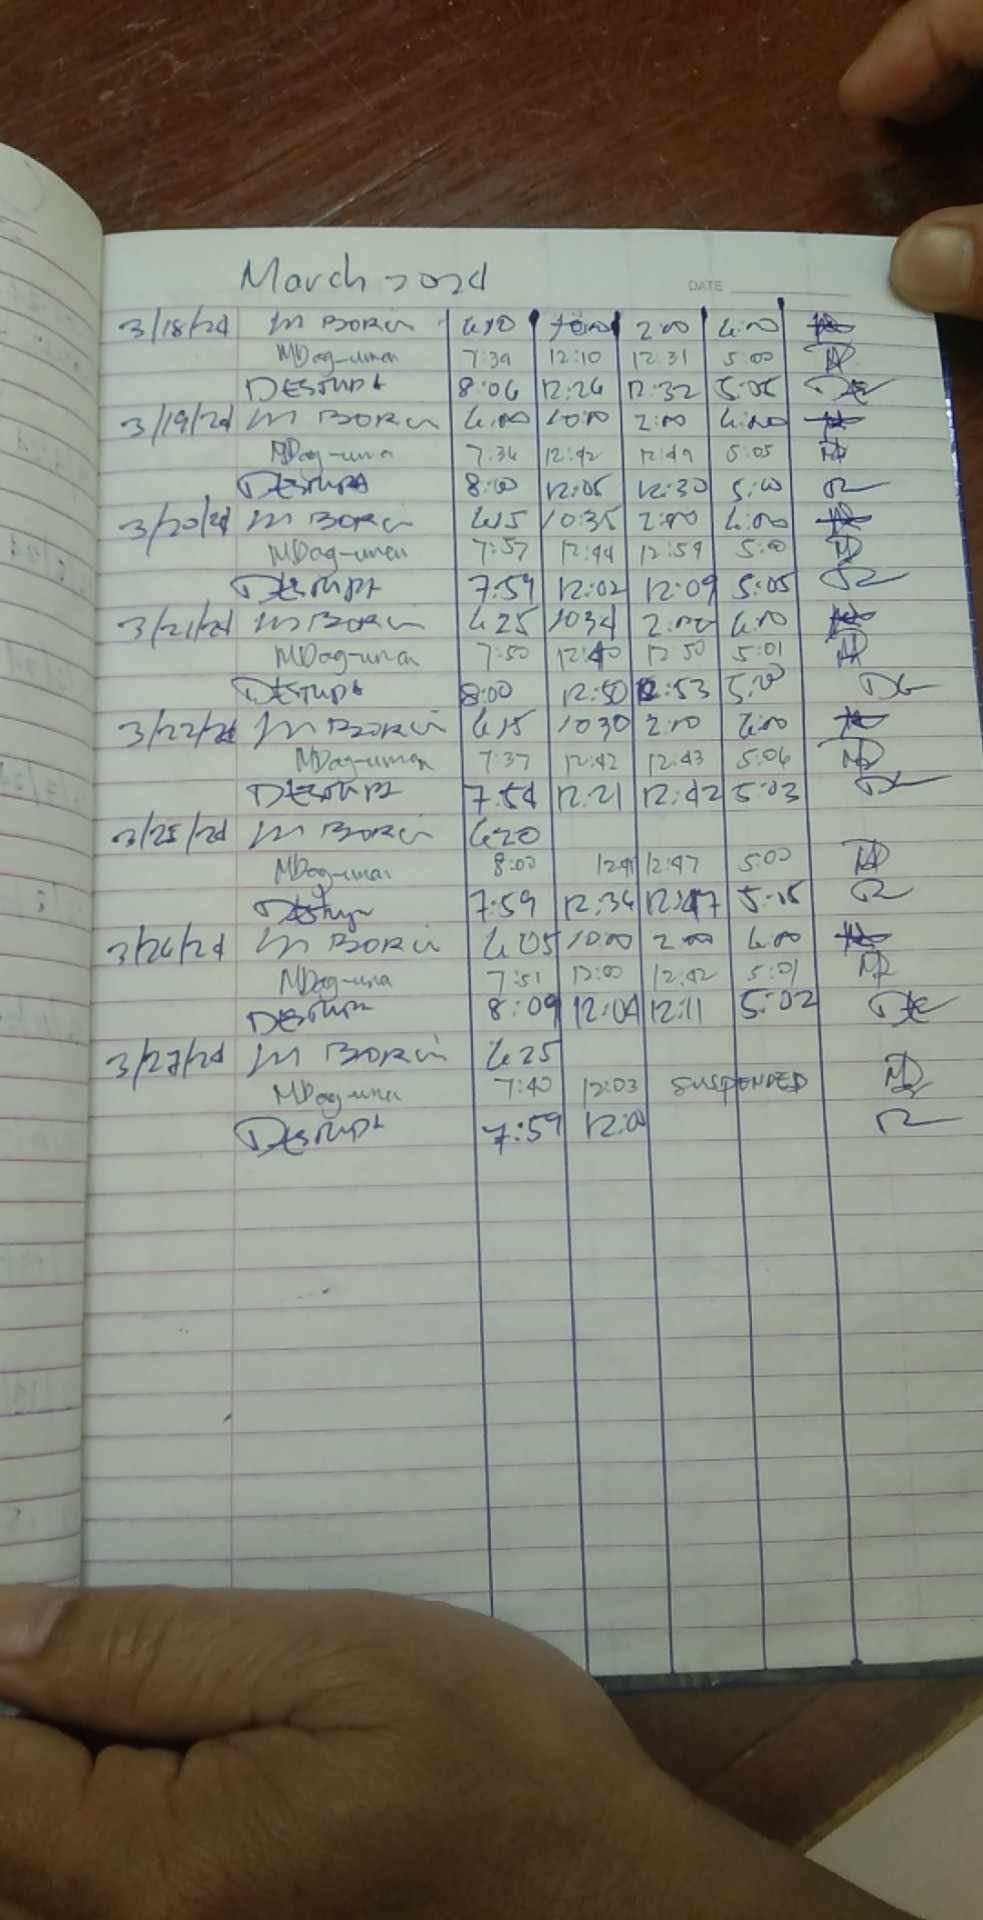 March 2024
DATE
3/18/24 M BORCI 6:10 10:00 2:00 6:00
MDag-uman 7:39 12:10 12:31 5:00 MD
DESTUPA 8:06 12:26 12:32 5:05
3/19/24 M BORCI 6:00 10:00 2:00 6:00
MDag-uma 7:36 12:42 12:49 5:05 MD
DESTUPA 8:00 12:05 12:30 5:00
3/20/24 M BORCI 6:15 10:35 2:00 6:00
MDag-uman 7:57 12:44 12:59 5:00 MD
DESTUPA 7:59 12:02 12:09 5:05
3/21/24 M BORCI 6 25 1034 2:00 6:00
MDag-uman 7:50 12:40 12:50 5:01 MD
DESTUPA 8:00 12:50 12:53 5:00
3/22/24 M BORCI 6 15 10 30 2:00 6:00
MDag-uman 7:37 12:42 12:43 5:06 MD
DESTUPA 7:54 12:21 12:42 5:03
3/25/24 M BORCI 6 20
MDag-uman 8:00 12:47 5:00 MD
7:59 12:36 12:47 5:15
3/26/24 M BORCI 6 05 10:00 2:00 6:00
MDag-uma 7:51 12:00 12:42 5:01 MD
DESTUPA 8:09 12:04 12:11 5:02
3/27/24 M BORCI 6 25
MDag-uma 7:40 12:03 SUSPENDED MD
DESTUPA 7:59 12:00